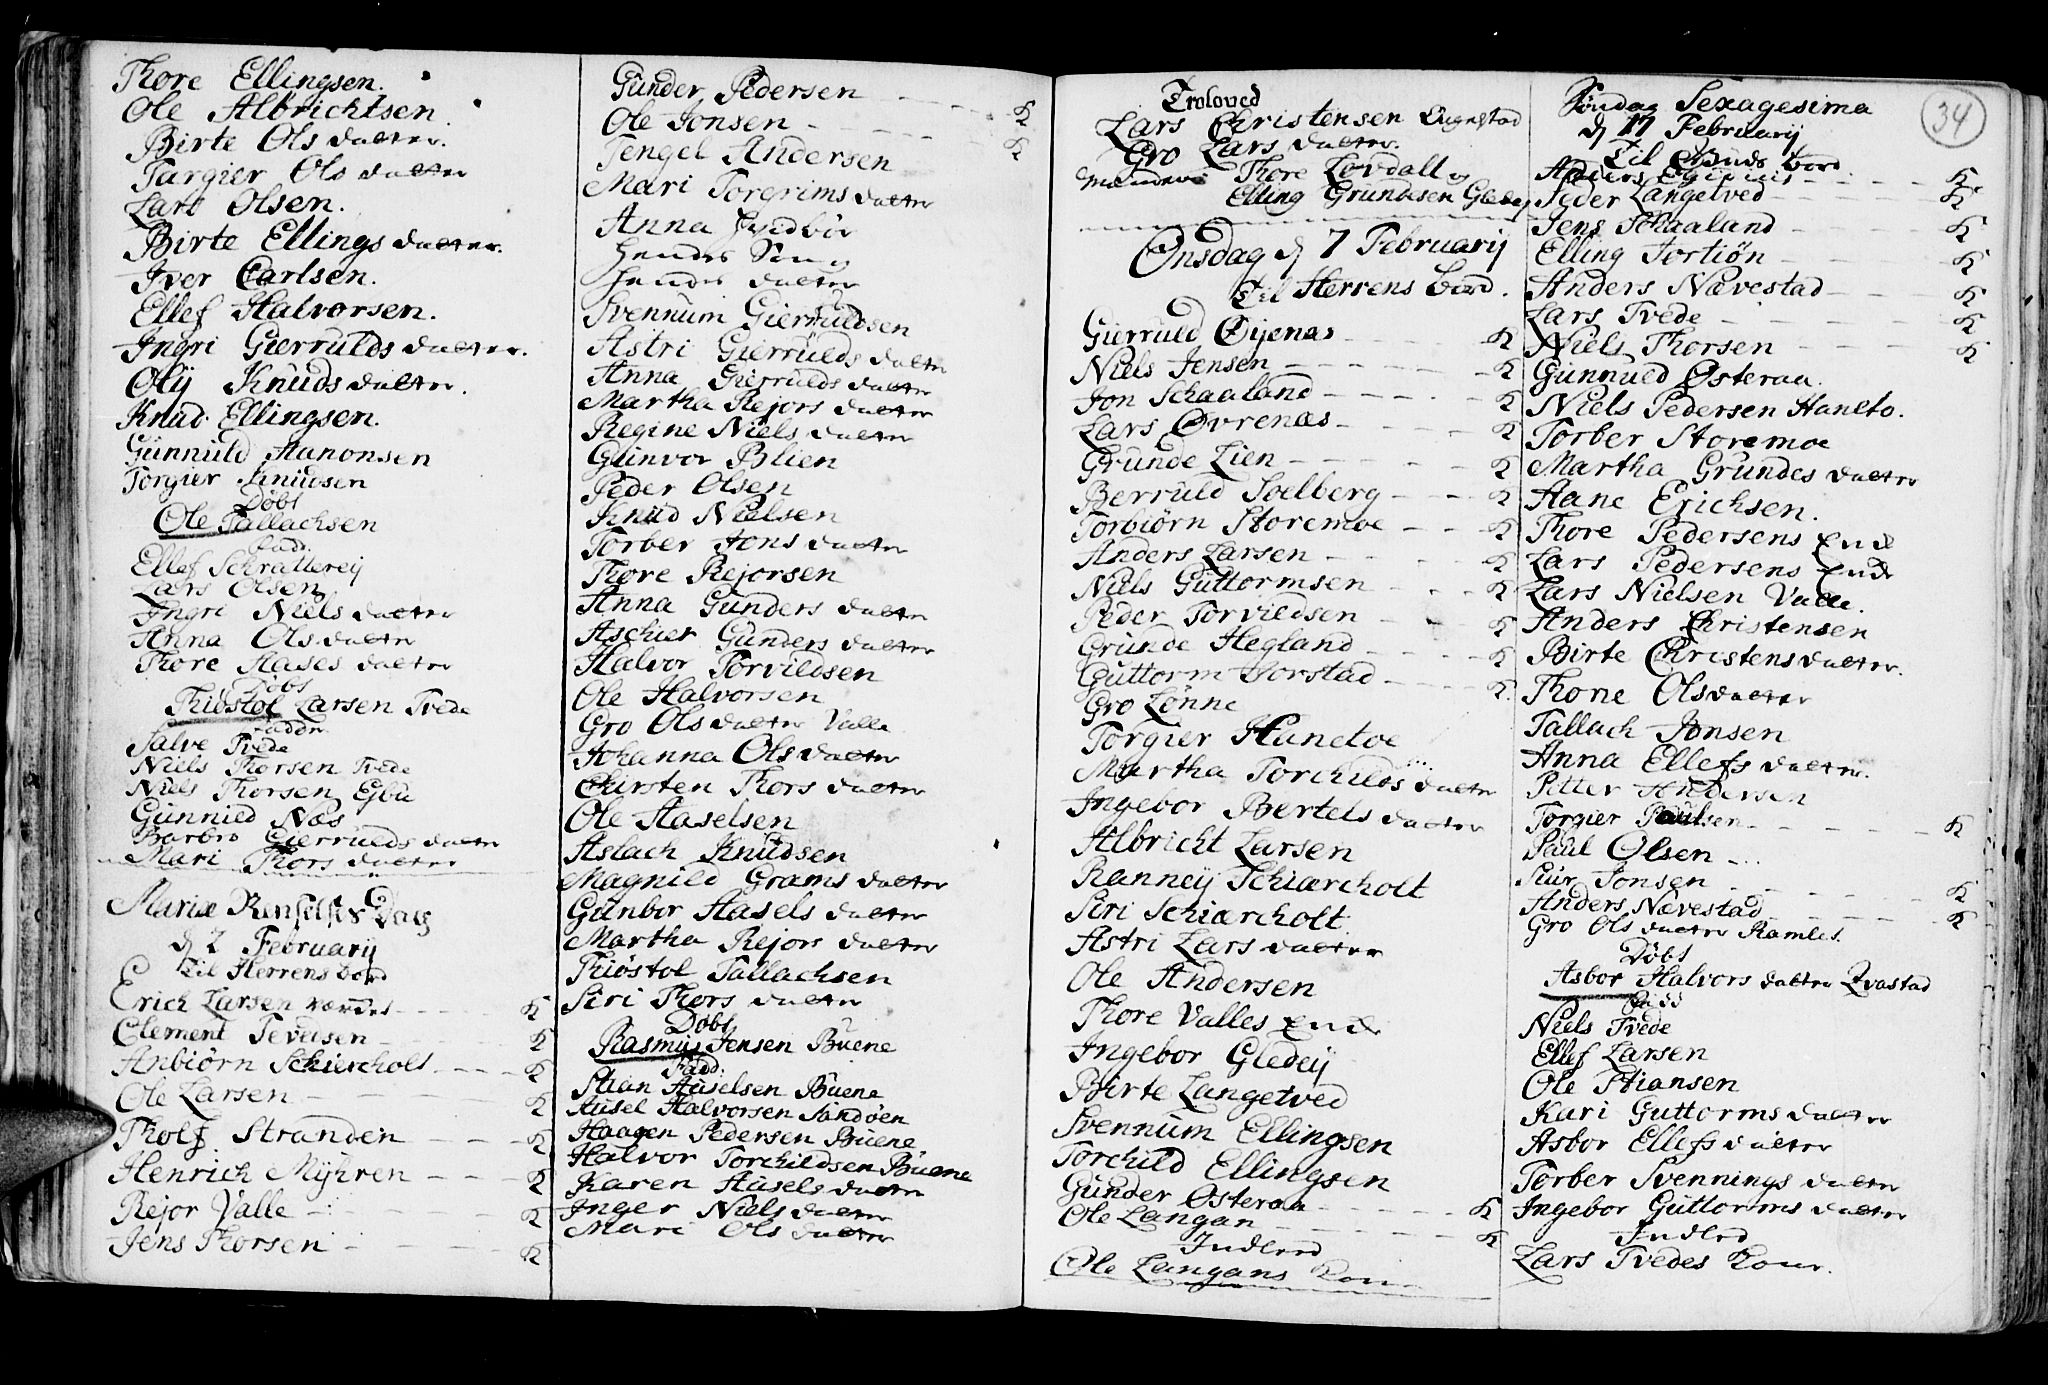 Thore Ellingsen.
Ole Albrichtsen.
Birte Ols datter.
Targier Ols datter
Lars Olsen.
Birte Ellings datter.
Iver Carlsen.
Ellef Halvorsen.
Ingri Gierrulds datter.
Olij Knuds datter.
Knud Ellingsen.
Gunnuld Aanonsen
Torgier Knudsen
Døbt
Ole Tallachsen
Fadr.
Ellef Schratterej
Lars Olsen
Ingri Niels datter
Anna Ols datter
Thore Aases datter
Døbt
Thiøstol Larsen Tvede
Faddr.
Salve Tvede
Niels Thorsen Tvede
Niels Thorsen Egbu
Gunnild Næs
Barbro Gierrulds datter
Mari Thors datter
Mariæ Renselses Dag
d 2 Februarij
Til Herrens bord
Erich Larsen - - - K
Clement Tevelsen - - - K
Anbiørn Schiercholt - - - K
Ole Larsen - - - K
Tholf Stranden - - - K
Henrich Myhren - - - K
Rejor Valle - - - K
Jens Thorsen - - - K
Gunder Pedersen - - - K
Ole Jonsen - - - K
Tengel Andersen
Mari Torgrims datter
Anna
Hendes Søn
Hendes datter
Svennum Gierruldsen
Astri Gierrulds datter
Anna Gierrulds datter
Martha Rejors datter
Regine Niels datter
Gunvor Blien
Peder Olsen
Knud Nielsen
Torber Jons datter
Thore Rejorsen
Anna Gunders datter
Aschier Gunders datter
Halvor Torvildsen
Ole Halvorsen
Gro Ols datter Valle
Johanna Ols datter
Chirsten Thors datter
Ole Aaselsen
Aslach Knudsen
Magnild Grams datter
Gunbor Aasels datter
Martha Rejors datter
Thiøstol Tallachsen
Siri Thors datter
Døbt
Rasmus Jensen Buene
Fadd:
Stian Auselsen Buene
Ausel Halvorsen Sandøen
Haagen Pedersen Buene
Halvor Torchildsen Buene
Karen Ausels datter
Inger Niels datter
Mari Ols datter
34
Troloved
Lars Christensen
Gro Lars datter.
Thore Løvdall og
Elling Grundesen Gledej
Onsdag d 7 Februarij
Til Herrens bord.
Gierruld Øijenas - - - K
Niels Jensen - - - K
Jon Schaaland - - - K
Lars Øvrenæs - - - K
Grunde Lien - - - K
Berruld Solberg - - - K
Torbiørn Storemoe - - - K
Anders Larsen - - - K
Niels Guttormsen - - - K
Peder Torvildsen - - - K
Grunde Hegland - - - K
Guttorm Vorstad - - - K
Gro Lønne
Torgier Hanetoe
Martha Torchilds datter
Ingebor Bertels datter
Albricht Larsen
Ranneij Schiærcholt
Siri Schiærcholt
Astri Lars datter
Ole Andersen
Thore Valles Enche
Ingebor Gledeij
Birte Langetved
Svennum Ellingsen
Torchild Ellingsen
Gunder Østeraa - - - K
Ole Langan - - - K
Indleed
Ole Langans Kone
Søndag Sexagesima
d 17 Februarij
Til Guds bord
Anders - - - K
Peder Langetved - - - K
Jens Schaaland - - - K
Elling Tortiøn - - - K
Anders Nævestad - - - K
Lars Tvede - - - K
Niels Thorsen - - - K
Gunnuld Østeraa.
Niels Pedersen Haneto.
Torber Storemoe
Martha Grundes datter
Aane Erichsen.
Thore Pedersens Enche
Lars Pedersens Enche
Lars Nielsen Valle.
Anders Christensen
Birte Christens datter.
Thone Ols datter
Tallach Jonsen
Anna Ellefs datter.
Petter Andersen
Torgier Paulsen - - - K
Paul Olsen - - -
Siur Jonsen - - - K
Anders Nævestad - - - K
Gro Ols datter Ramles.
Døbt
Asbor Halvors datter Qvastad
Fadd
Niels Tvede
Ellef Larsen
Ole Stiansen
Kari Guttorms datter
Asbor Ellefs datter
Torber Svennings datter
Ingebor Guttorms datter
Indleed
Lars Tvedes Kone.